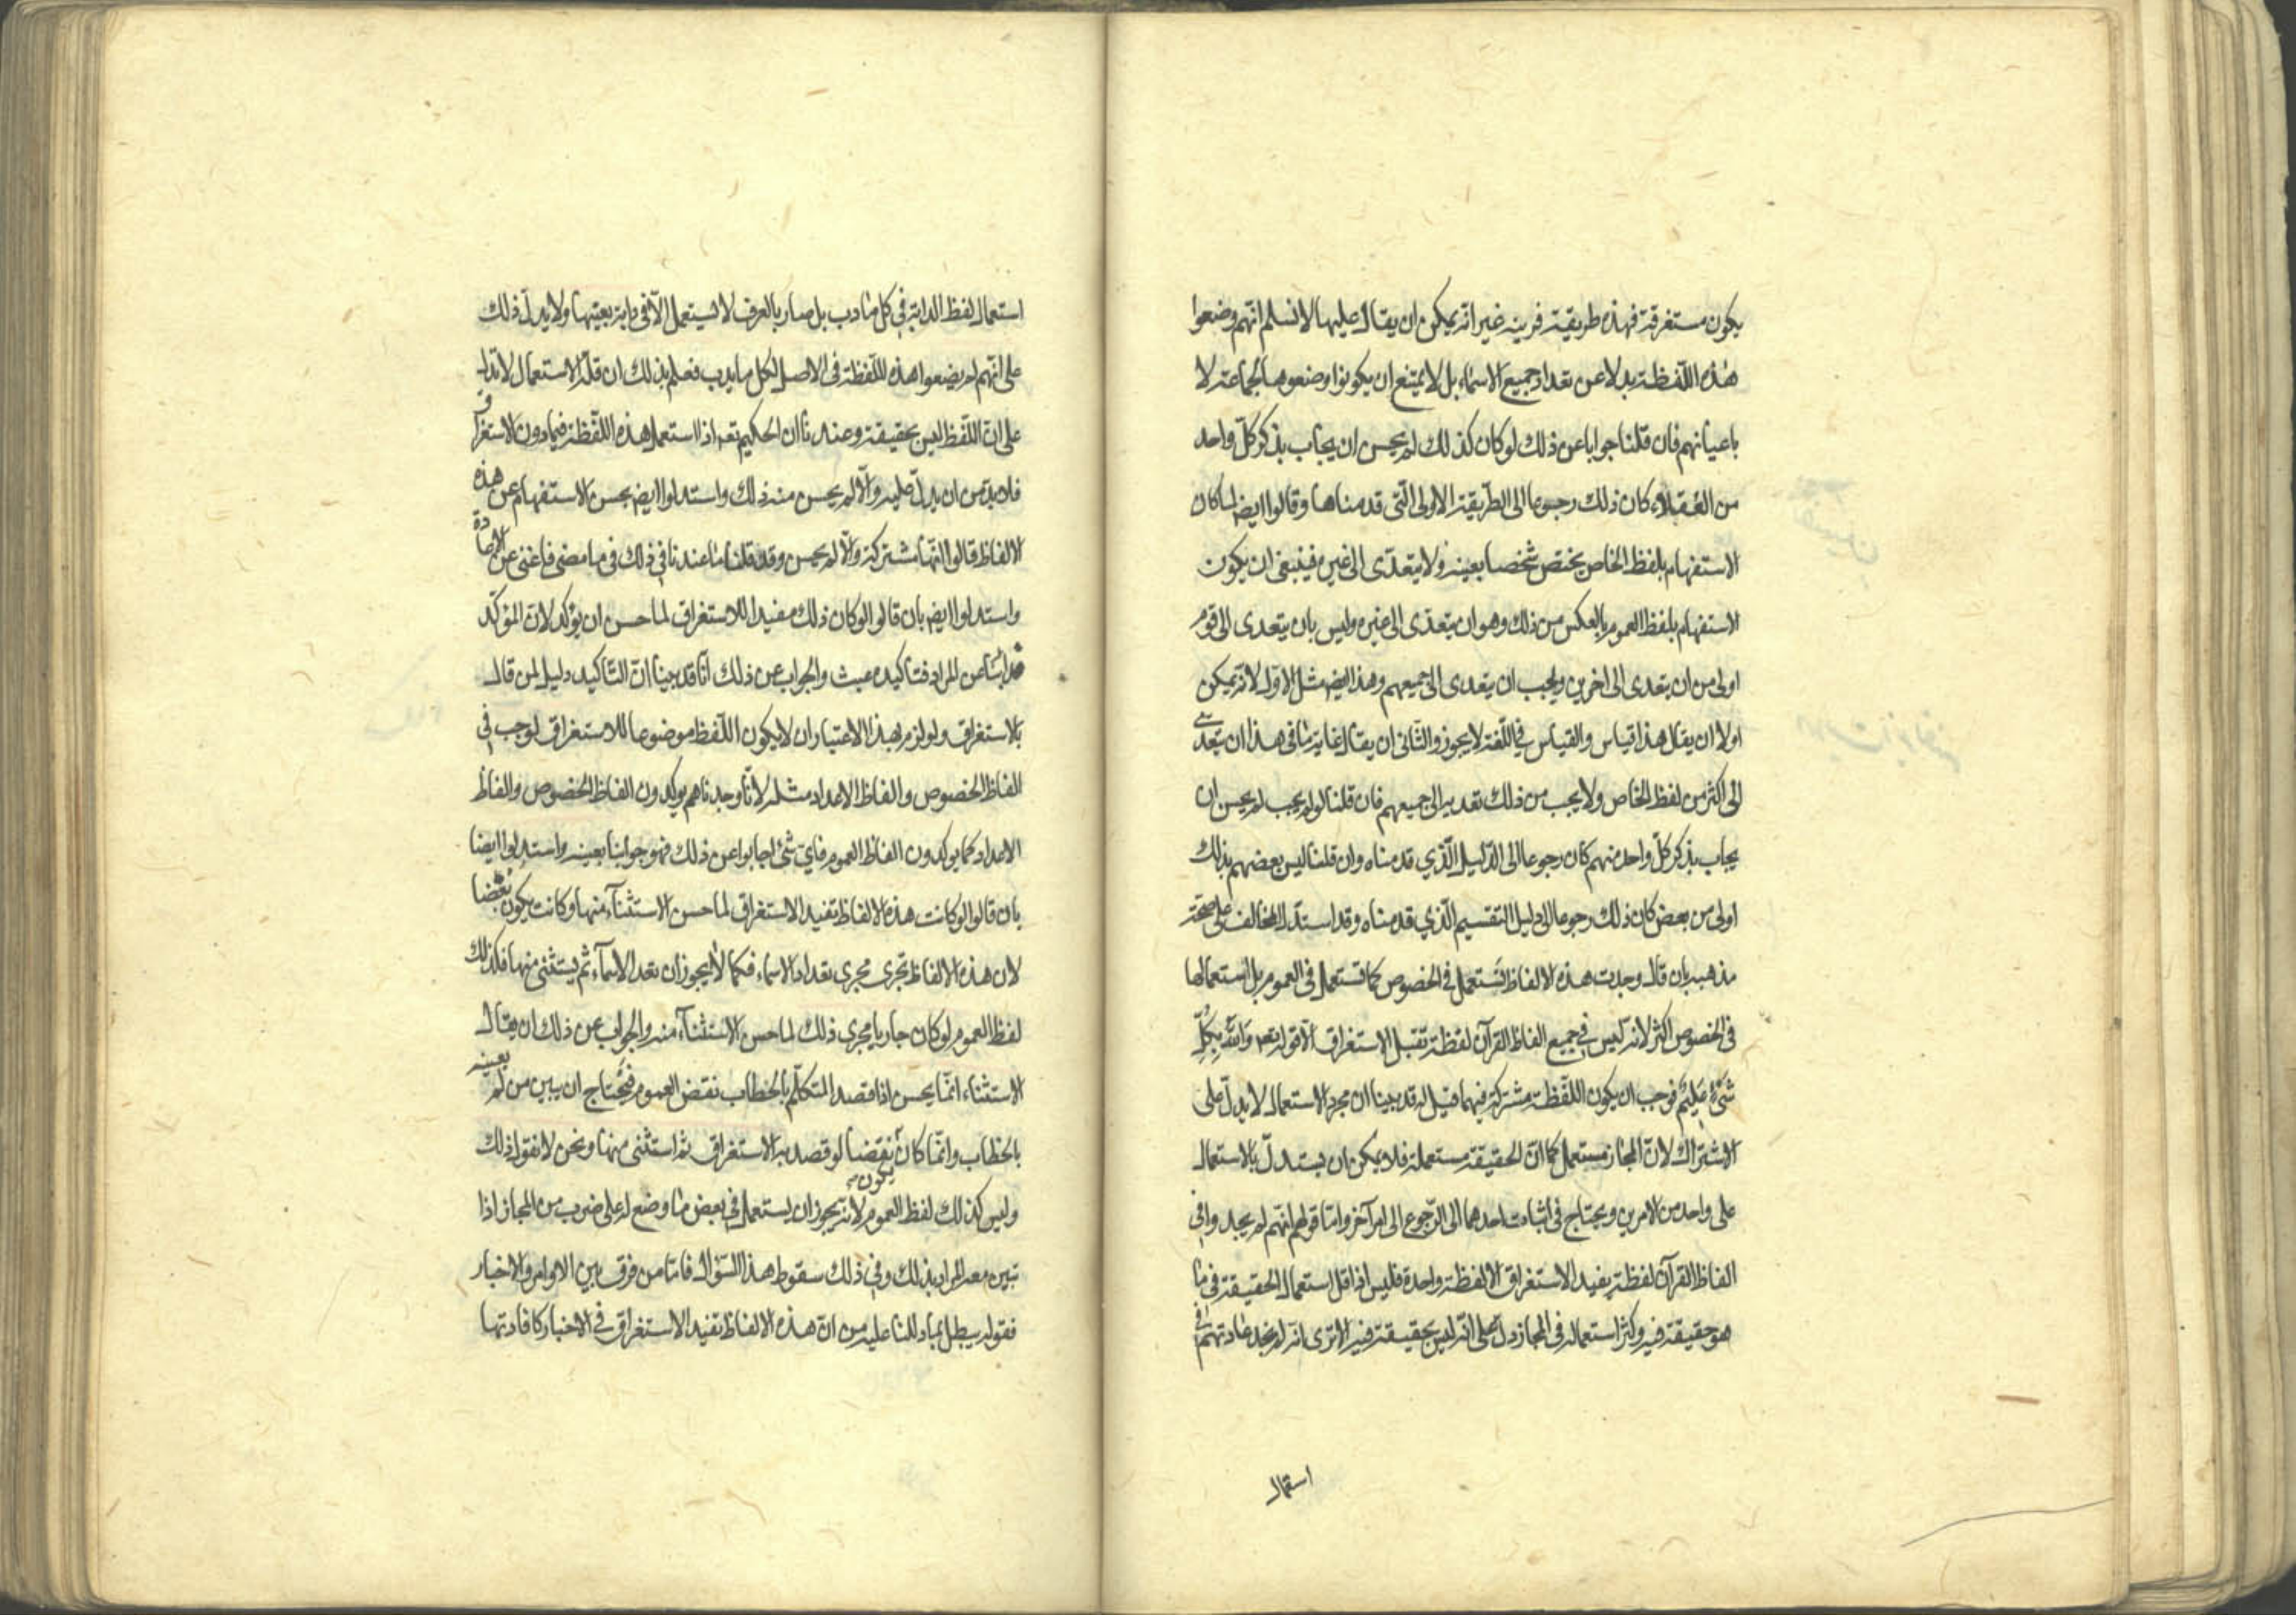 يكون مستغرقة فهذه طريقية قريبة غير انّه يمكن ان يقال عليها لا نسلم انّهم وضعوا
هذه اللّفظة بدلا عن تعداد جميع الاسماء بل لا يمتنع ان يكونوا وضعوها لجماعة لا
باعيانهم فان قلنا جوابا عن ذلك لو كان كذلك لم يحسن ان يجاب بذكر كلّ واحد
من العقلاء كان ذلك رجوعا الى الطّريقة الاولى الّتي قدمناها وقالوا ايضا لما كان
الاستفهام بلفظ الخاص يختصّ شخصا بعينه ولا يتعدّى الى غيره فينبغي ان يكون
الاستفهام بلفظ العموم بالعكس من ذلك وهو ان يتعدّى الى غيره وليس بان يتعدى الى قوم
اولى من ان يتعدى الى اخرين ويجب ان يتعدى الى جميعهم وهذا ايضا مثل الاوّل لانّه يمكن
اولا ان يقال هذا قياس والقياس في اللّغة لا يجوز والثّاني ان يقال غاية ما في هذا ان يتعدّى
الى اكثر من لفظ الخاص ولا يجب من ذلك تعديه الى جميعهم فان قلنا لو لم يجب لم يحسن ان
يجاب بذكر كلّ واحد منهم كان رجوعا الى الدّليل الّذي قدمناه وان قلنا ليس بعضهم بذلك
اولى من بعض كان ذلك رجوعا الى دليل التقسيم الّذي قدمناه وقد استدلّ المخالف على صحّة
مذهبه بان قال وجدت هذه الالفاظ تستعمل في الخصوص كما تستعمل في العموم بل استعمالها
في الخصوص اكثر لانّه ليس في جميع الفاظ القرآن لفظة تقبل الاستغراق الّا قوله تعه وَاللّهُ بِكُلِّ
شَيْءٍ عَلِيمٌ فوجب ان يكون اللّفظة مشتركة فيهما قيل له قد بينا ان مجرد الاستعمال لا يدلّ على
الاشتراك لانّ المجاز مستعمل كما انّ الحقيقة مستعملة فلا يمكن ان يستدلّ بالاستعمال
على واحد من الامرين ويحتاج في اثبات احدهما الى الرّجوع الى امر آخر وامّا قولهم انّهم لم يجدوا في
الفاظ القرآن لفظة يفيد الاستغراق الا لفظة واحدة فليس اذا قل استعمال الحقيقة في ما
هو حقيقة فيه وكثر استعماله في المجاز دلّ على انّه ليس بحقيقة فيه الا ترى انّه لم نجد عادتهم في
استعمال
استعمال لفظ الدابة في كل ما دب بل صار بالعرف لا يستعمل الّا في دابة بعينها ولا يدلّ ذلك
على انّهم لم يضعوا هذه اللّفظة في الاصل لكل ما يدب فعلم بذلك ان قلّة الاستعمال لا تدل
على انّ اللّفظ ليس بحقيقة وعندنا ان الحكيم تعه اذا استعمل هذه اللّفظة فيما دون الاستغراق
فلا بدّ من ان يدلّ عليه والّا لم يحسن منه ذلك واستدلوا ايضا بحسن الاستفهام عن هذه
الالفاظ قالوا انّها مشتركة والّا لم يحسن وقد قلنا ما عندنا في ذلك في ما مضى فاغنى عن الاعادة
واستدلوا ايضا بان قالوا لو كان ذلك مفيدا للاستغراق لما حسن ان يؤكد لانّ المؤكّد
قد ابنا عن المراد فتاكيده عبث والجواب عن ذلك انّا قد بينا انّ التّاكيد دليل لمن قال
بالاستغراق ولو لزم بهذا الاعتبار ان لا يكون اللّفظ موضوعا للاستغراق لوجب في
الفاظ الخصوص والفاظ الاعداد مثله لانّا وجدناهم يؤكدون الفاظ الخصوص والفاظ
الاعداد كما يؤكدون الفاظ العموم فاي شئ اجابوا عن ذلك فهو جوابنا بعينه واستدلوا ايضا
بان قالوا لو كانت هذه الالفاظ تفيد الاستغراق لما حسن الاستثناء منها وكانت يكون نقضا
لان هذه الالفاظ تجرى مجرى تعداد الاسماء فكما لا يجوز ان تعد الاسماء ثمّ يستثنى منها فكذلك
لفظ العموم لو كان جاريا مجرى ذلك لما حسن الاستثناء منه والجواب عن ذلك ان يقال
الاستثناء انّما يحسن اذا قصد المتكلّم بالخطاب نقض العموم فيحتاج ان يبين من لم يعينه
بالخطاب وانّما كان يكون نقضا لو قصد به الاستغراق ثم استثنى منها ونحن لا نقول ذلك
وليس كذلك لفظ العموم لانّه يجوز ان يستعمل في بعض ما وضع له على ضرب من المجاز اذا
تبين معه المراد بذلك وفي ذلك سقوط هذا السّؤال فامّا من فرق بين الاوامر والاخبار
فقوله يبطل بما دللنا عليه من انّ هذه الالفاظ تفيد الاستغراق في الاخبار كافادتها